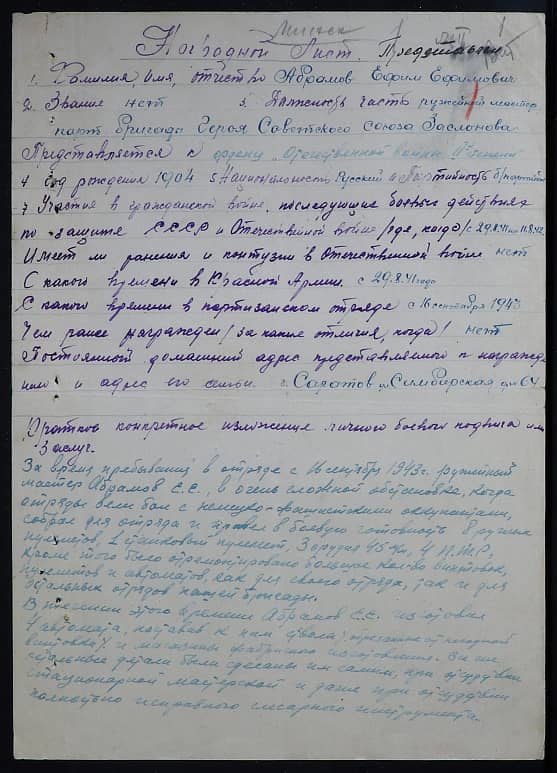 Минск
1
Наградной Лист. Представлен
1. Фамилия, имя, отчество Абрамов Ефим Ефимович
2. Звание нет 3. Должность часть ружейный мастер
парт бригада Героя Советского Союза Заслонова
Представляется к ордену „Отечественной войны II степени"
4 Год рождения 1904 5 Национальность Русский 6 Партийность б/партийн
7 Участие в гражданской войне, последующие боевых действиях
по защите СССР и Отечественной войне /где, когда/ с 29.8.41
Имеет ли ранения и контузии в Отечественной войне нет
С какого времени в Красной Армии. с 29.8.41 года
С какого времени в партизанском отряде с 16 сентября 1943
Чем ранее награжден /за какие отличия, когда/ нет
Постоянный домашний адрес представляемого к награжде-
нию и адрес его семьи. г. Саратов ул. Симбирская д. 64
Краткое конкретное изложение личного боевого подвига или
заслуг.
За время пребывания в отряде с 16 сентября 1943 г. оружейный
мастер Абрамов Е.Е., в очень сложной обстановке, когда
отряды вели бои с немецко-фашистскими оккупантами,
собрал для отряда и привел в боевую готовность 8 ручных
пулеметов, 2 станковый пулемет, 3 орудия 45 м/м,
Кроме того было отремонтировано большое кол-во винтовок,
пулеметов и автоматов, как для своего отряда, так и для
остальных отрядов нашей бригады.
В течении этого времени Абрамов Е.Е. изготовил
4 автомата, поставив к ним стволы
винтовки/ и магазины фабричного изготовления. Все же
остальные детали были сделаны им самим, при отсутствии
стационарной мастерской и даже при отсутствии
полностью исправного слесарного инструмента.